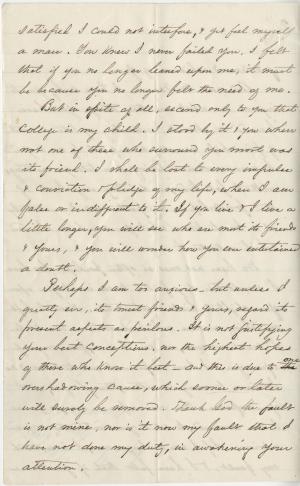 satisfied I could not interfere, & yet feel myself
a man. You knew I never failed you. I felt
that if you no longer leaned upon me, it must
be because you no longer felt the need of me.
But in spite of all, second only to you that
College is my child. I stood by it & you when
not one of those who surround you most was
its friend. I shall be lost to every impulse
& conviction & pledge of my life, when I am
false or indifferent to it. If you live & I live a
little longer, you will see who are most its friends
& yours, & you will wonder how you ever entertained
a doubt.
Perhaps I am too anxious - but unless I
greatly err, its truest friends & yours, regard its
present aspects as perilous. It is not justifying
your best conceptions, nor the highest hopes
of those who know it best - and this is due to one
overshadowing cause, which sooner or later
will surely be removed. Thank God the fault
is not mine, nor is it now my fault that I
have not done my duty, in awakening your
attention.